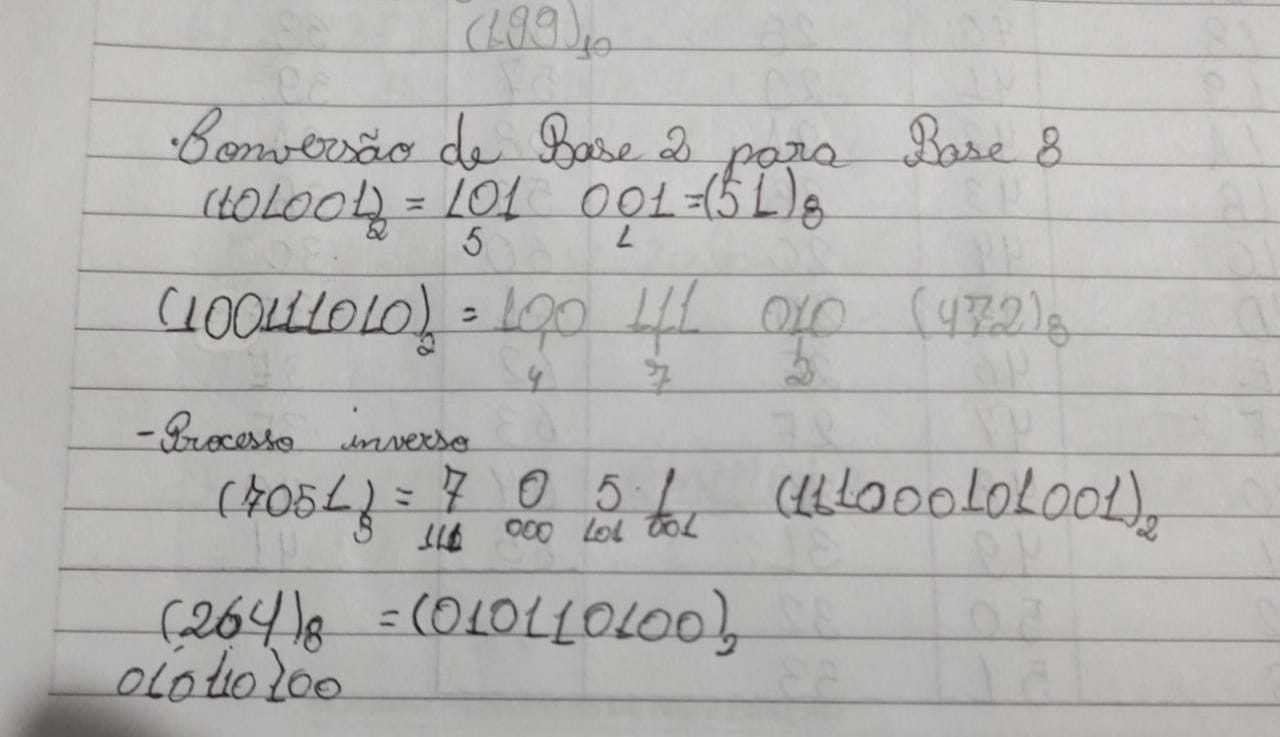 (199)10
·Conversão de Base 2 para Base 8
(101001)2 = 101 001 =(51)8
5 1
(100111010)2 = 100 111 010 (472)8
4 7 2
-Processo inverso
(7051)8 = 7 0 5 1 (111000101001)2
111 000 101 001
(264)8 =(010110100)2
010110100